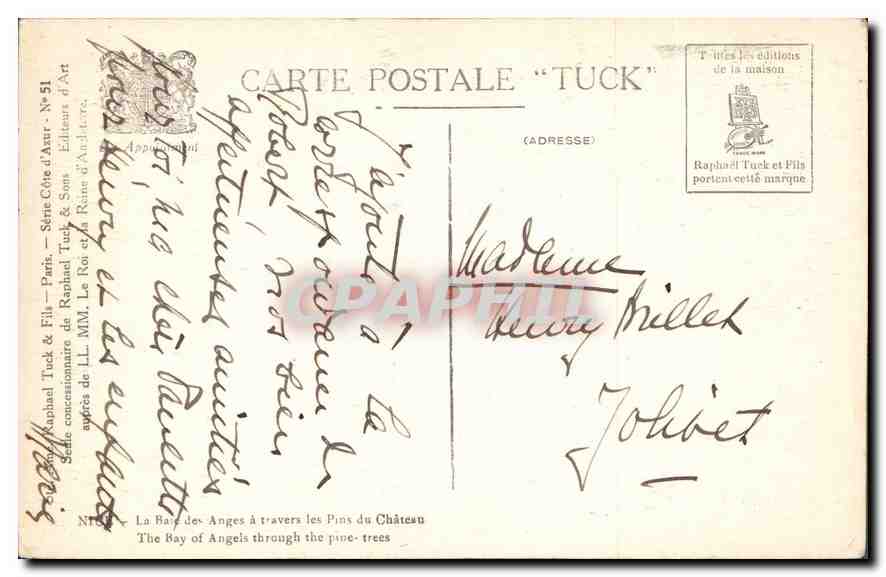 CARTE POSTALE "TUCK"
Toutes les éditions
de la maison
TRADE MARK
Raphaël Tuck et Fils
portent cette marque
(ADRESSE)
Appointment
Raphael Tuck & Fils — Paris. — Série Côte d'Azur - No 51
Seule concessionnaire de Raphael Tuck & Sons Editeurs d'Art
auprès de LL. MM. Le Roi et la Reine d'Angleterre.
J'ajoute à la
correspondance de
Robert mes bien
affectueuses amitiés
pour toi, ma chère Paulette
pour Henry et les enfants
Madame
Henry Brillet
Jolivet
CPAPHIL
NICE - La Baie des Anges à travers les Pins du Château
The Bay of Angels through the pine-trees